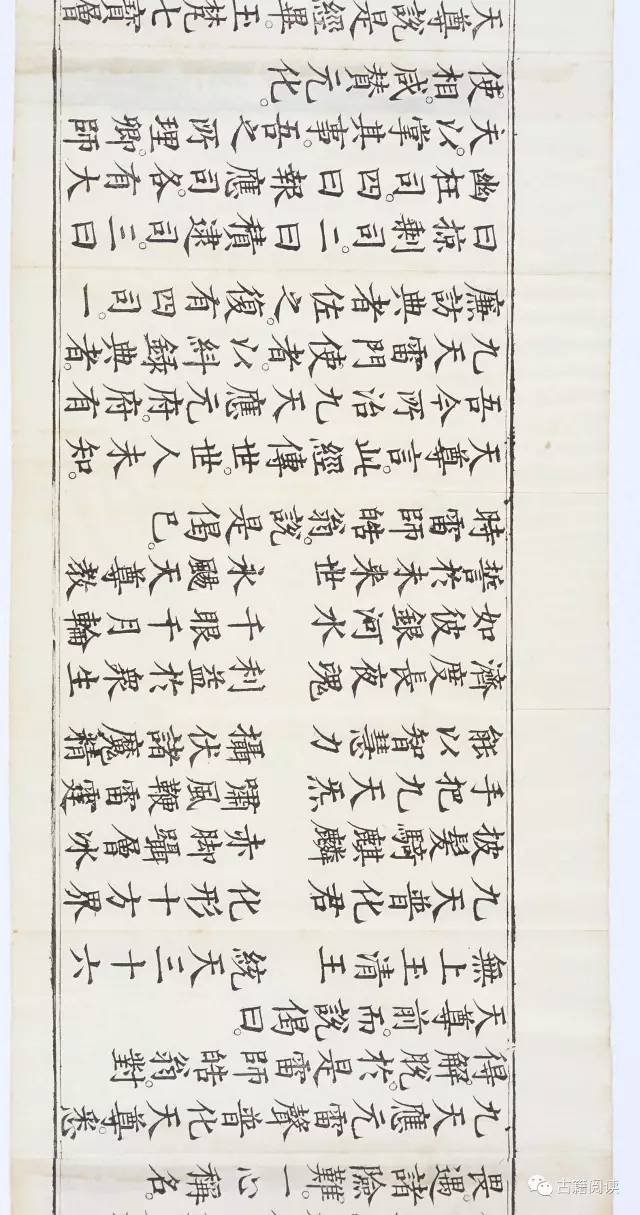 畏。遇諸險難。一心稱名。
九天應元雷聲普化天尊悉
得解脫。於是雷師皓翁。對
天尊前。而說偈曰。
無上玉清王　統天三十六
九天普化君　化形十方界
披髮騎麒麟　赤脚躡層冰
手把九天炁　嘯風鞭雷霆
能以智慧力　攝伏諸魔精
濟度長夜魂　利益於衆生
如彼銀河水　千眼千月輪
誓於未來世　永颺天尊教
時雷師皓翁。說是偈已。
天尊言。此經傳世。世人未知。
吾今所治九天應元府。府有
九天雷門使者。以糾錄典者。
廉訪典者佐之。復有四司。一
曰掠剩司。二曰積逮司。三曰
幽枉司。四曰報應司。各有大
夫。以掌其事。吾之所理。卿師
使相。咸贊元化。
天尊說是經畢。玉梵七寶層
古籍阅读